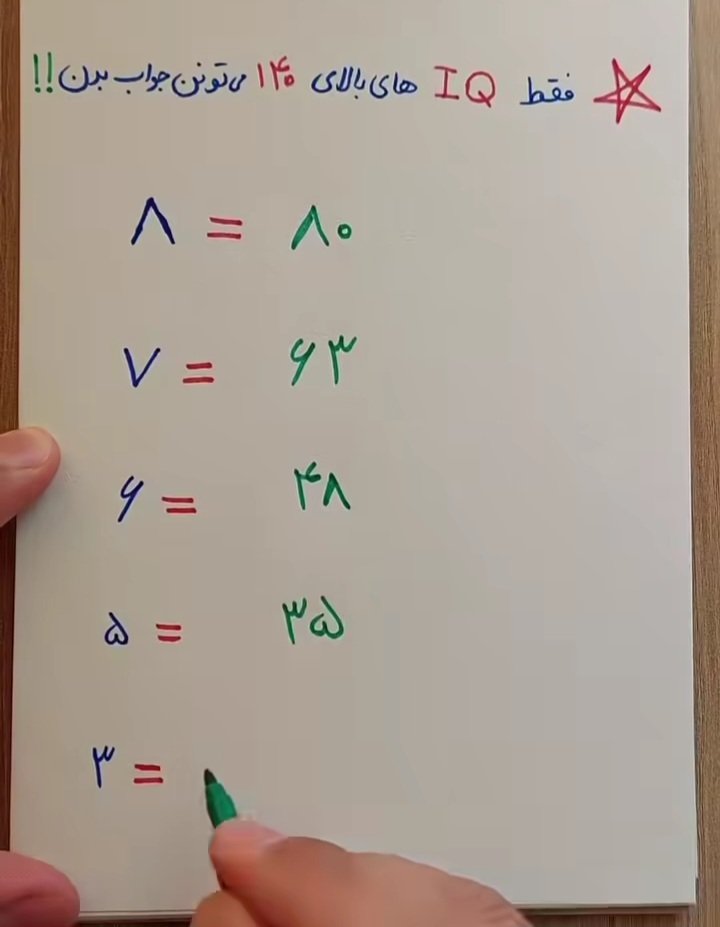 فقط IQ های بالای ۱۴۰ می‌تونن جواب بدن!!
۸ = ۸۰
۷ = ۶۳
۶ = ۴۸
۵ = ۳۵
۳ =